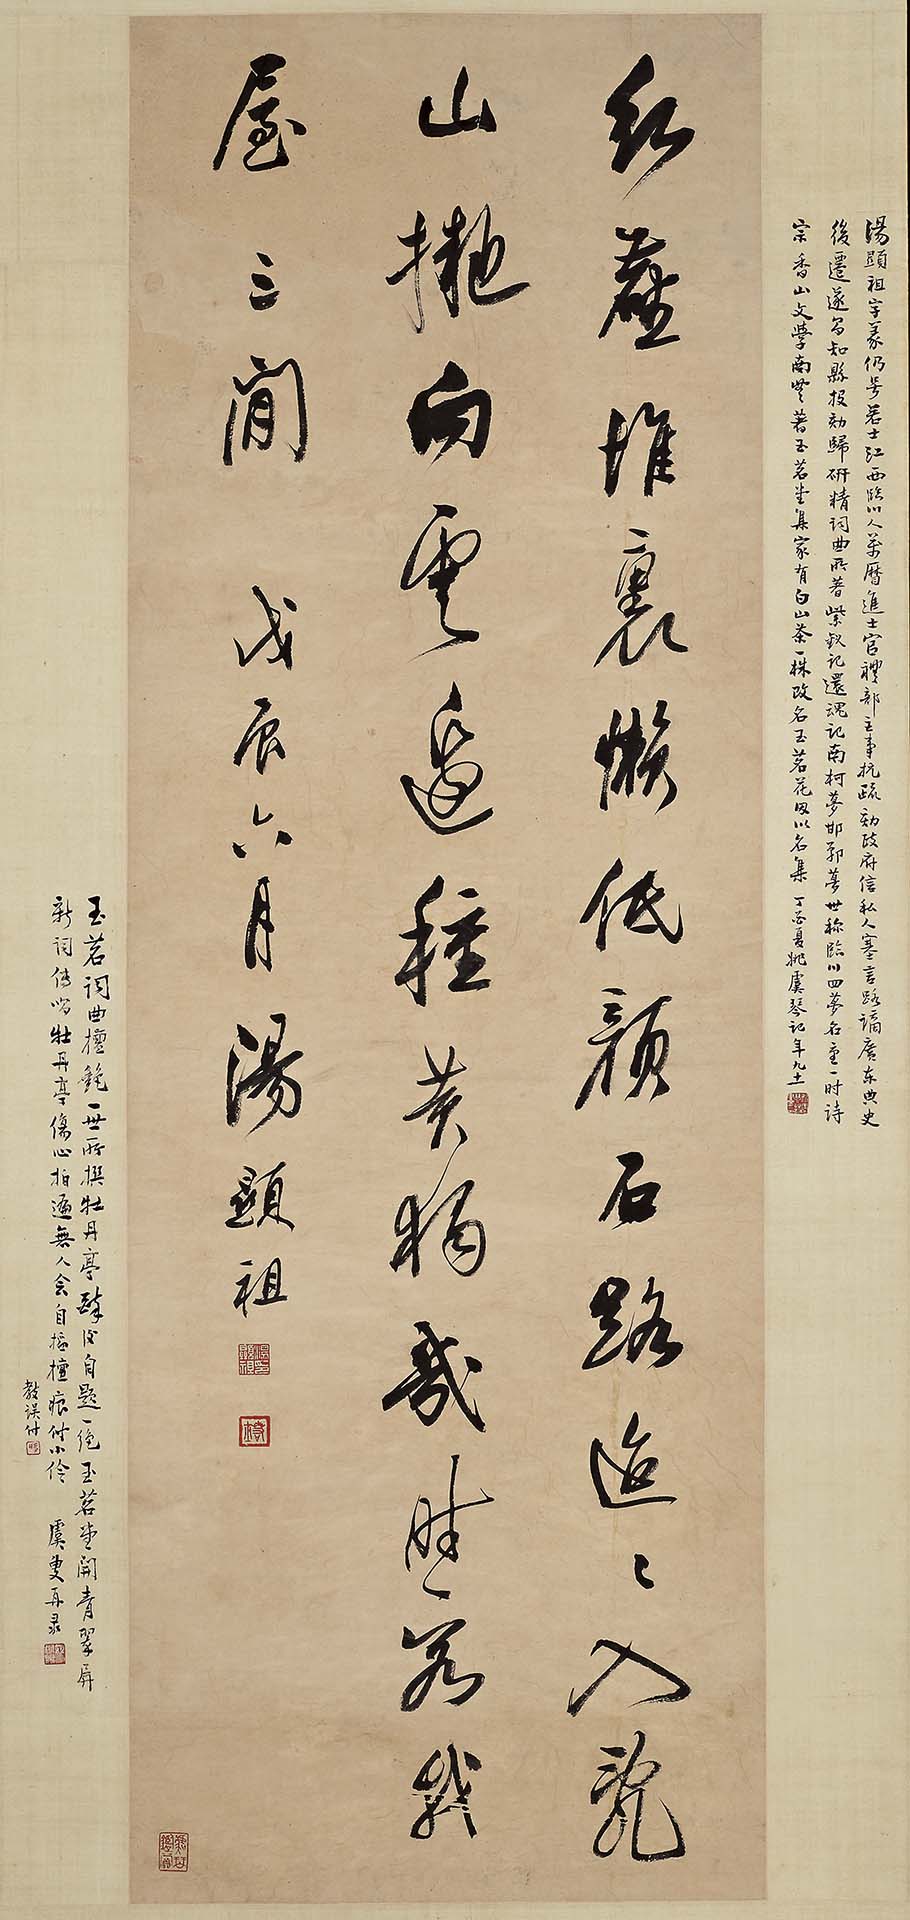 湯顯祖字義仍号若士江西臨川人萬曆進士官禮部主事抗疏劾政府信私人塞言路謫廣东典史
後遷遂昌知縣投劾歸研精詞曲所著紫釵記還魂記南柯夢邯鄲夢世称臨川四夢名重一时诗
宗香山文學南豐著玉茗堂集家有白山茶一株改名玉茗花因以名集 丁酉夏姚虞琴記年九十一
紅塵堆裏懶低顏石路迢〻入亂
山擬向雲邊種黃獨幾時容我
屋三間 戊辰六月湯顯祖
玉茗詞曲擅絕一世所撰牡丹亭後自題一絕玉茗堂開青翠屏
新詞傳唱牡丹亭傷心拍遍無人会自掐檀痕付小伶 虞叟再录
教誤付